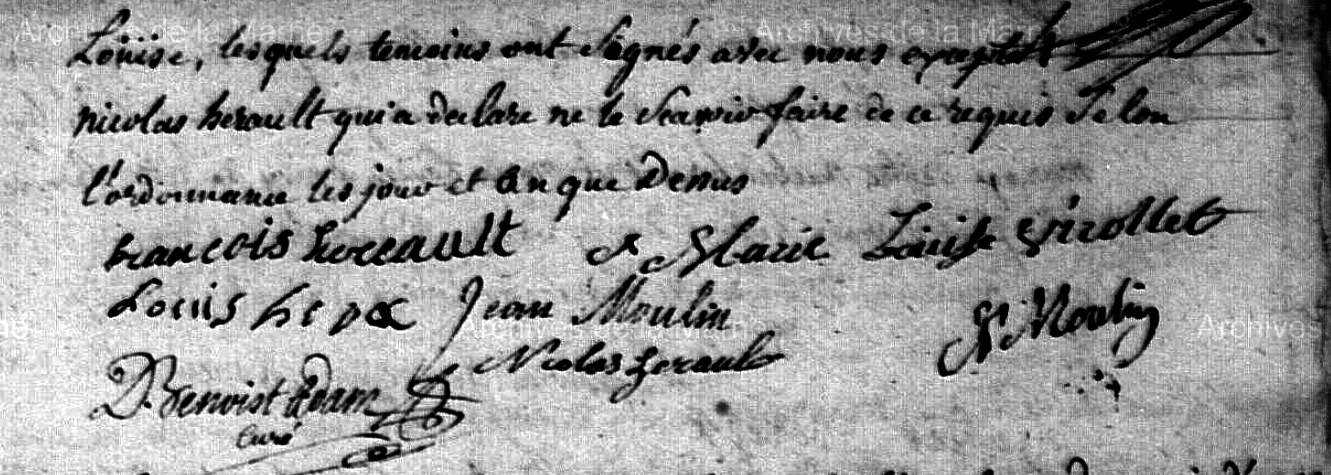 Louise, lesquels temoins ont signés avec nous excepté
nicolas herault qui a declaré ne le scavoir faire de ce requis selon
l'ordonnance les jour et an que Dessus
francois herault Marie Louise Girollet
Louis Jean Moulin Moulin
Nicolas herault
D. Benoist Adam
Curé
Archives de la Marne